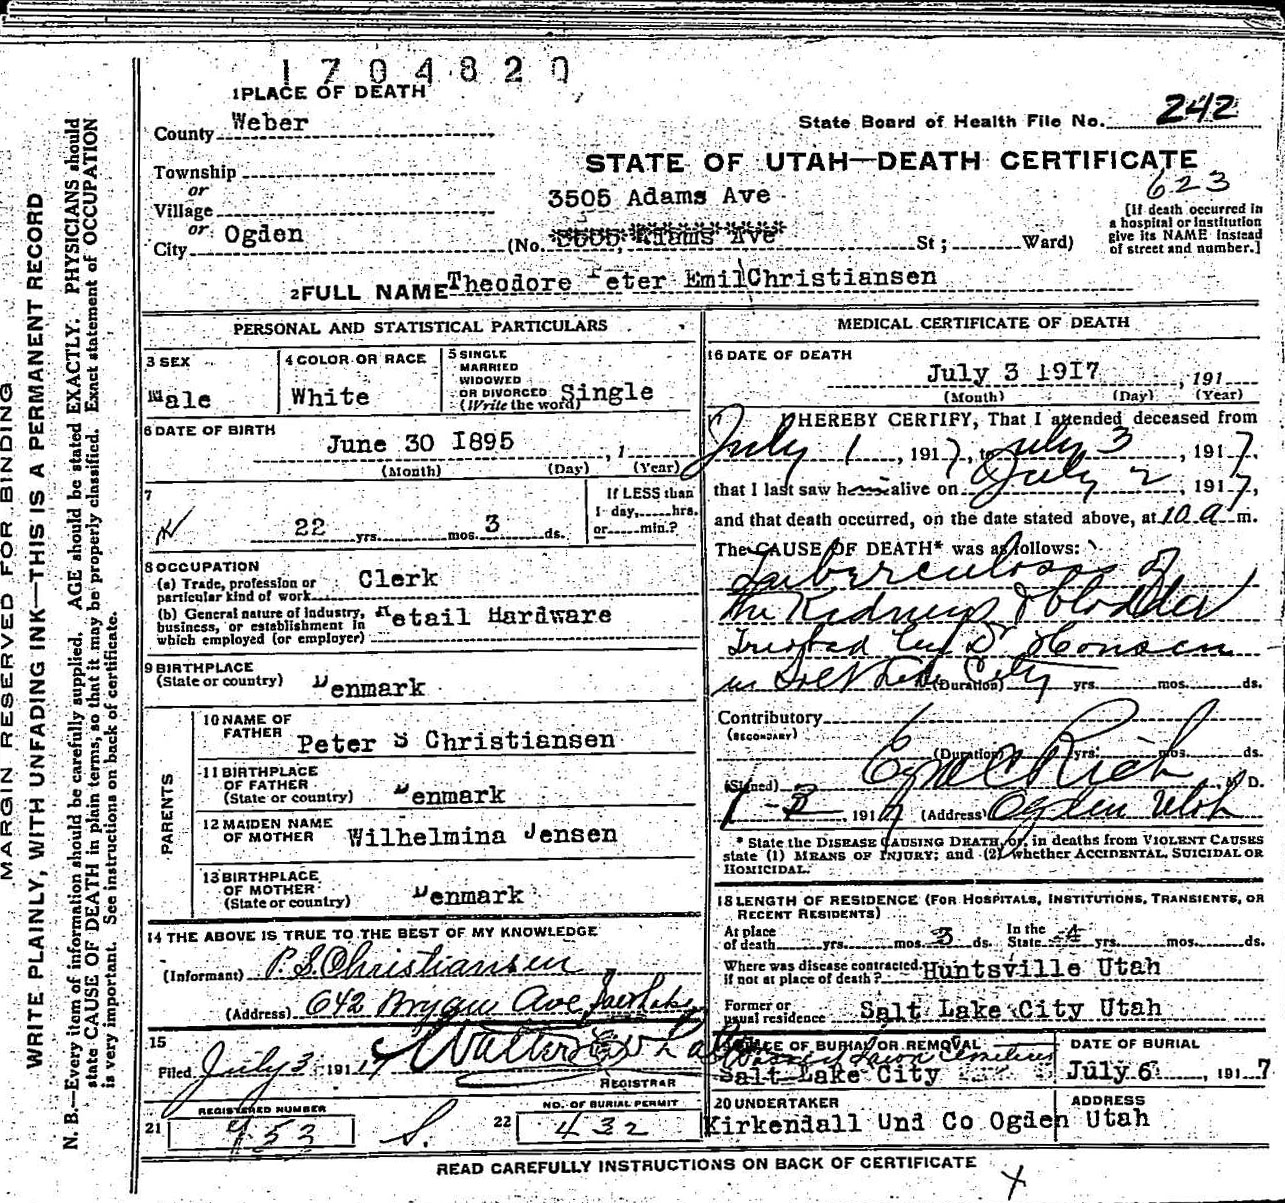 1704820
1 PLACE OF DEATH
County Weber
State Board of Health File No. 242
STATE OF UTAH—DEATH CERTIFICATE
Township
or
Village
or
City Ogden
3505 Adams Ave
623
(No. 3505 Adams Ave St; Ward)
[If death occurred in
a hospital or institution
give its NAME instead
of street and number.]
2 FULL NAME Theodore Peter Emil Christiansen
PERSONAL AND STATISTICAL PARTICULARS
3 SEX
Male
4 COLOR OR RACE
White
5 SINGLE
MARRIED
WIDOWED
OR DIVORCED
(Write the word)
Single
6 DATE OF BIRTH
June 30 1895 , 1
(Month) (Day) (Year)
7
22 yrs. mos. 3 ds.
If LESS than
1 day, hrs.
or min.?
8 OCCUPATION
(a) Trade, profession or
particular kind of work Clerk
(b) General nature of industry,
business, or establishment in
which employed (or employer) Retail Hardware
9 BIRTHPLACE
(State or country) Denmark
PARENTS
10 NAME OF
FATHER Peter S Christiansen
11 BIRTHPLACE
OF FATHER
(State or country) Denmark
12 MAIDEN NAME
OF MOTHER Wilhelmina Jensen
13 BIRTHPLACE
OF MOTHER
(State or country) Denmark
14 THE ABOVE IS TRUE TO THE BEST OF MY KNOWLEDGE
(Informant) P. S. Christiansen
(Address) 642 Ave
15
Filed July 3 1917 Walter
REGISTRAR
21 REGISTERED NUMBER
S.
22 NO. OF BURIAL PERMIT
432
MEDICAL CERTIFICATE OF DEATH
16 DATE OF DEATH
July 3 1917 , 191
(Month) (Day) (Year)
I HEREBY CERTIFY, That I attended deceased from
July 1 , 1917, to July 3 , 1917,
that I last saw h alive on July 2 , 1917,
and that death occurred, on the date stated above, at 10 a m.
The CAUSE OF DEATH* was as follows:
Tuberculosis of
the Kidneys & bladder
Treated by Dr Hansen
in Salt Lake City
(Duration) yrs. mos. ds.
Contributory
(SECONDARY)
(Duration) yrs. mos. ds.
(Signed) Rich M. D.
7-3 1917 (Address) Ogden Utah
* State the DISEASE CAUSING DEATH, or, in deaths from VIOLENT CAUSES
state (1) MEANS OF INJURY; and (2) whether ACCIDENTAL, SUICIDAL OR
HOMICIDAL.
18 LENGTH OF RESIDENCE (FOR HOSPITALS, INSTITUTIONS, TRANSIENTS, OR
RECENT RESIDENTS)
At place
of death yrs. mos. 3 ds.
In the
State 4 yrs. mos. ds.
Where was disease contracted,
if not at place of death? Huntsville Utah
Former or
usual residence Salt Lake City Utah
PLACE OF BURIAL OR REMOVAL
Lawn Cemetery
Salt Lake City
DATE OF BURIAL
July 6 , 1917
20 UNDERTAKER
Kirkendall Und Co
ADDRESS
Ogden Utah
READ CAREFULLY INSTRUCTIONS ON BACK OF CERTIFICATE
MARGIN RESERVED FOR BINDING
WRITE PLAINLY, WITH UNFADING INK—THIS IS A PERMANENT RECORD
N. B.—Every item of information should be carefully supplied. AGE should be stated EXACTLY. PHYSICIANS should
state CAUSE OF DEATH in plain terms, so that it may be properly classified. Exact statement of OCCUPATION
is very important. See instructions on back of certificate.